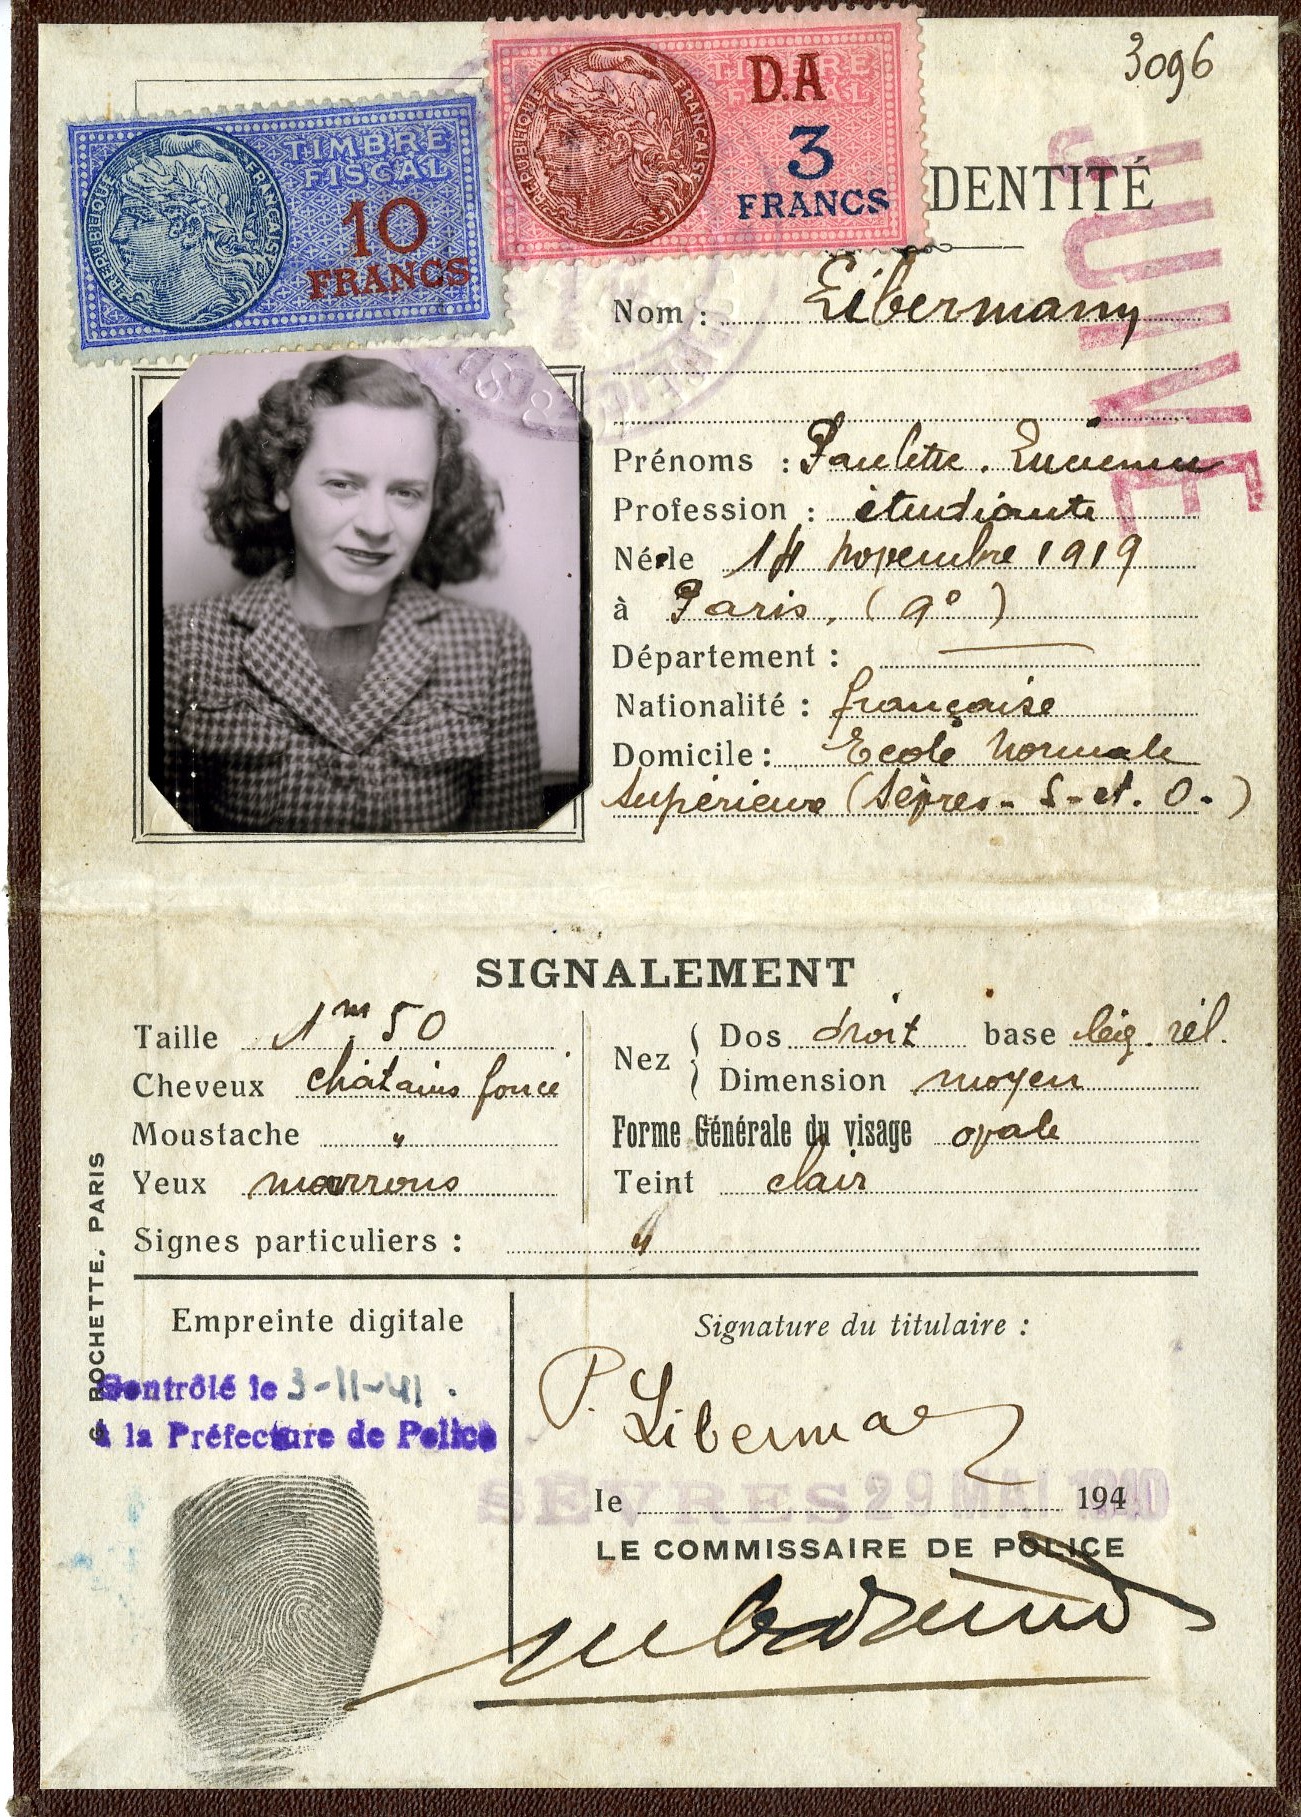 3096
TIMBRE FISCAL
10
FRANCS
RÉPUBLIQUE FRANÇAISE
TIMBRE FISCAL
D.A
3
FRANCS
RÉPUBLIQUE FRANÇAISE
DENTITÉ
JUIVE
Nom : Libermann
Prénoms : Paulette. Lucienne
Profession : étudiante
Né le 14 novembre 1919
à Paris. (9e)
Département :
Nationalité : française
Domicile : Ecole Normale
Supérieure (Sèvres - S-et. O.)
SIGNALEMENT
Taille 1m 50
Cheveux châtains foncé
Moustache "
Yeux marrons
Nez { Dos droit base lég. rel.
Dimension moyen
Forme Générale du visage ovale
Teint clair
Signes particuliers : "
G. ROCHETTE, PARIS
Empreinte digitale
Contrôlé le 3-11-41.
à la Préfecture de Police
Signature du titulaire :
P. Liberman
SÈVRES 29 MAI 1940
le 194
LE COMMISSAIRE DE POLICE